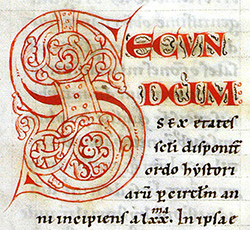 SECUN
DUM
sex etates
scli disponit
ordo hystori
arū p circlm an
ni incipiens a lxx.ma In ipsa e